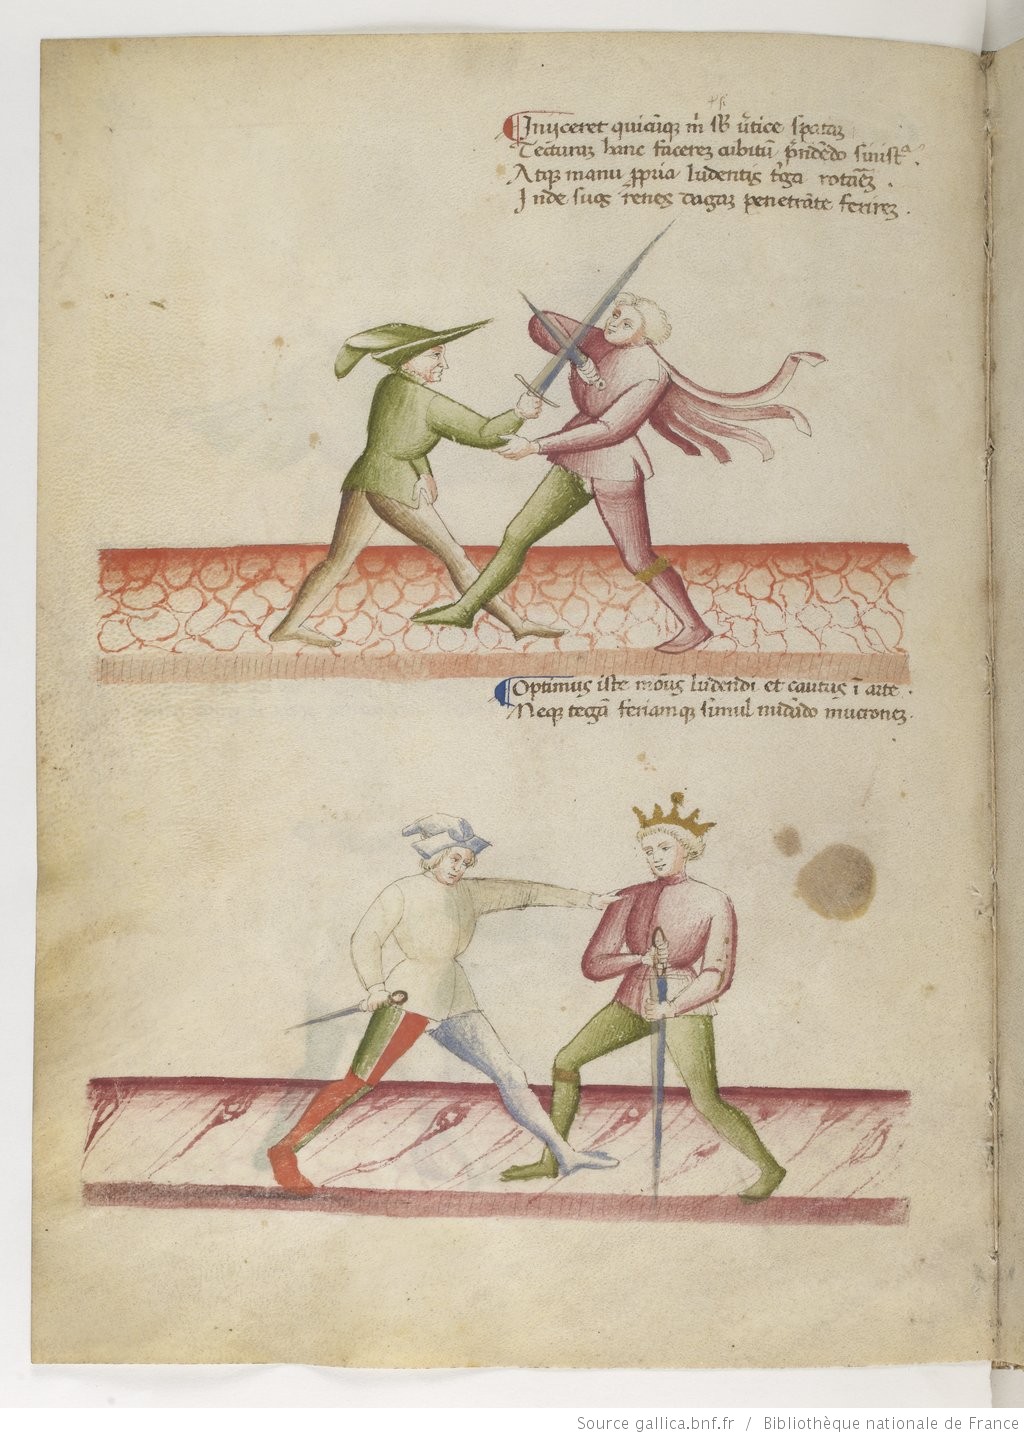 Inijceret quicũqꝫ m̃ sb̃ ũtice spataꝫ
Tecturaꝫ hanc facereꝫ cubitũ p̃ndẽdo sinist̃ᵃ.
Atqꝫ manu ꝓpria ludentis t̃ga rotãꝫ.
Inde suos rẽnes dagaꝫ penetrãte ferireꝫ.
Optimus iste modus ludendi et cautus ĩ arte.
Neqꝫ tegã feriamqꝫ simul nudãdo mucroneꝫ.
Source gallica.bnf.fr / Bibliothèque nationale de France